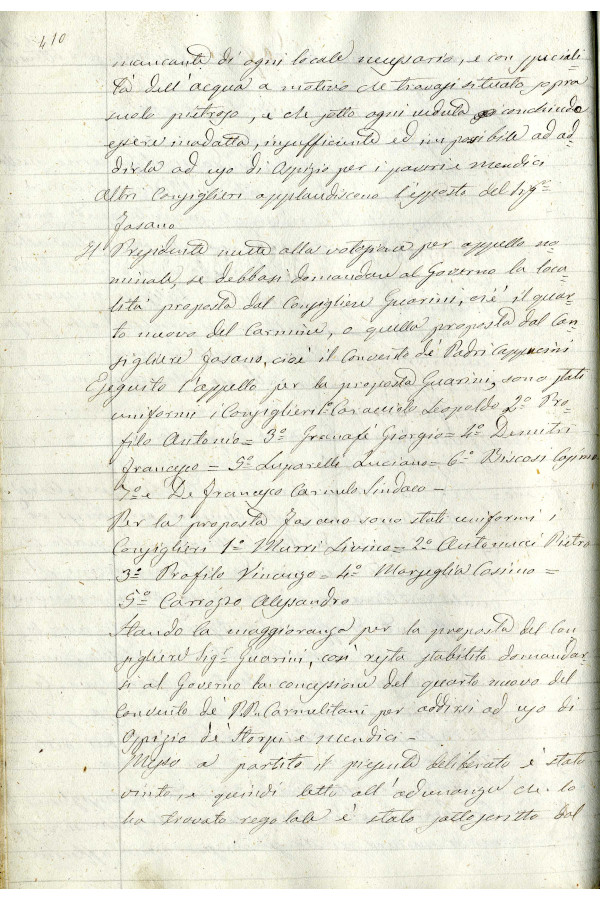 410
mancante di ogni locale necessario, e con speciali-
tà dell'acqua a motivo che trovasi situato sopra
suolo pietroso, e che sotto ogni veduta conchiude
essere inadatto, insufficiente ed impossibile ad ad-
dirla ad uso di Ospizio per i poveri e mendici
Altri Consiglieri applaudiscono l'esposto del Sigr.
Fasano
Il Presidente mette alla votazione per appello no-
minale, se debbasi domandare al Governo la loca-
lità proposta dal Consigliere Guarini, cioè il quar-
to nuovo del Carmine, o quella proposta dal Con-
sigliere Fasano, cioè il Convento de' Padri Cappucini
Eseguito l'appello per la proposta Guarini, sono stati
uniformi i Consiglieri 1º Caracciolo Leopoldo 2º Pro-
filo Antonio = 3º Granafei Giorgio = 4º Demitri
Francesco = 5º Luparelli Luciano = 6º Biscosi Cosimo
7º e De Francesco Carmelo Sindaco –
Per la proposta Fasano sono stati uniformi i
Consiglieri 1º Murri Livino = 2º Antonucci Pietro
3º Profilo Vincenzo = 4º Marseglia Cosimo =
5º Carrozzo Alessandro
Stando la maggioranza per la proposta del Con-
sigliere Sigr. Guarini, così resta stabilito domandar-
si al Governo la concessione del quarto nuovo del
Convento de' P.P. Carmelitani per addirsi ad uso di
Ospizio de' Storpi e mendici –
Messo a partito il presente deliberato è stato
vinto, e quindi letto all'adunanza che lo
ha trovato regolare è stato sottoscritto dal